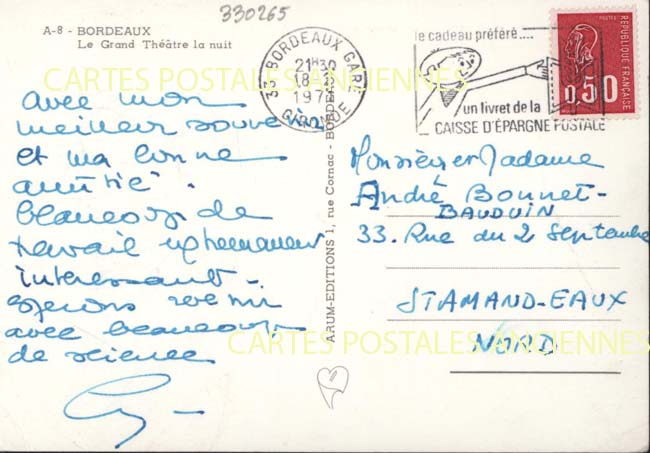 330265
A-8 - BORDEAUX
Le Grand Théâtre la nuit
CARTES POSTALES ANCIENNES
avec mon
meilleur souvenir
et ma bonne
amitié.
beaucoup de
travail extrêmement
intéressant -
espérons revenir
avec beaucoup
de science
ARUM-EDITIONS 1, rue Cornac - BORDEAUX
33 BORDEAUX GARE
21H30
18-3
GIRONDE
le cadeau préféré....
un livret de la
CAISSE D'ÉPARGNE POSTALE
POSTES
RÉPUBLIQUE FRANÇAISE
0,50
Monsieur Madame
André Bonnet-
BAUDUIN
33. Rue du 2 Septembre
ST AMAND-EAUX
NORD
CARTES POSTALES ANCIENNES